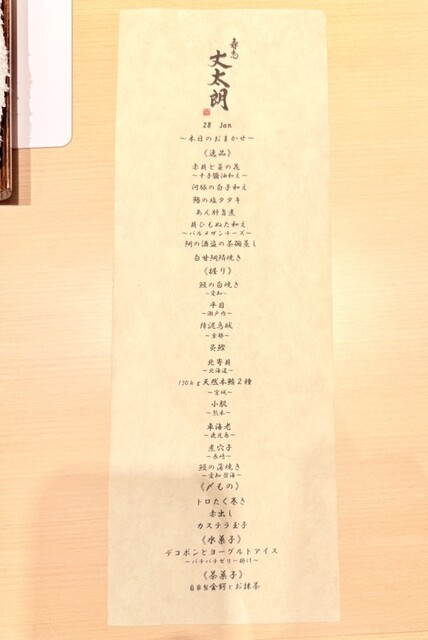 寿志
丈太朗
28 Jan
～本日のおまかせ～
《逸品》
赤貝と菜の花
～辛子醤油和え～
河豚の白子和え
鰆の塩タタキ
あん肝旨煮
貝ひもぬた和え
～パルメザンチーズ～
鮑の酒盗の茶碗蒸し
白甘鯛鱗焼き
《握り》
鰻の白焼き
～愛知～
平目
～瀬戸内～
障泥烏賊
～京都～
炙鰹
北寄貝
～北海道～
130kg天然本鮪2種
～宮城～
小肌
～熊本～
車海老
～鹿児島～
煮穴子
～長崎～
鰻の蒲焼き
～愛知碧海～
《〆もの》
トロたく巻き
赤出し
カステラ玉子
《水菓子》
デコポンとヨーグルトアイス
～パチパチゼリー掛け～
《茶菓子》
自家製金鍔とお抹茶